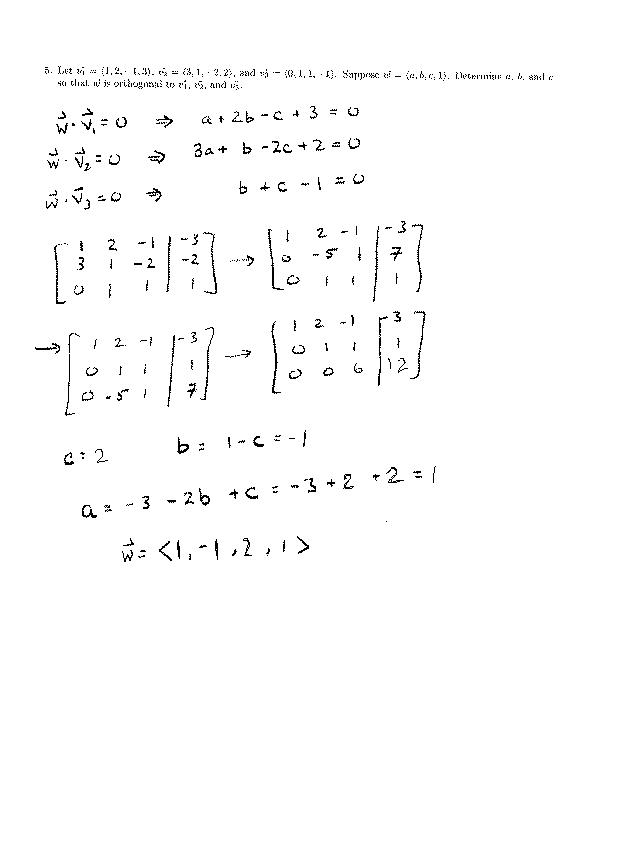 5. Let v⃗₁ = ⟨1, 2, -1, 3⟩, v⃗₂ = ⟨3, 1, -2, 2⟩, and v⃗₃ = ⟨0, 1, 1, -1⟩. Suppose w⃗ = ⟨a, b, c, 1⟩. Determine a, b, and c
so that w⃗ is orthogonal to v⃗₁, v⃗₂, and v⃗₃.
w⃗ · v⃗₁ = 0 ⇒ a + 2b - c + 3 = 0
w⃗ · v⃗₂ = 0 ⇒ 3a + b - 2c + 2 = 0
w⃗ · v⃗₃ = 0 ⇒ b + c - 1 = 0
[1 2 -1 | -3] [1 2 -1 | -3]
[3 1 -2 | -2] → [0 -5 1 | 7]
[0 1 1 | 1] [0 1 1 | 1]
[1 2 -1 | -3] [1 2 -1 | -3]
→ [0 1 1 | 1] → [0 1 1 | 1]
[0 -5 1 | 7] [0 0 6 | 12]
c = 2 b = 1 - c = -1
a = -3 - 2b + c = -3 + 2 + 2 = 1
w⃗ = <1, -1, 2, 1>